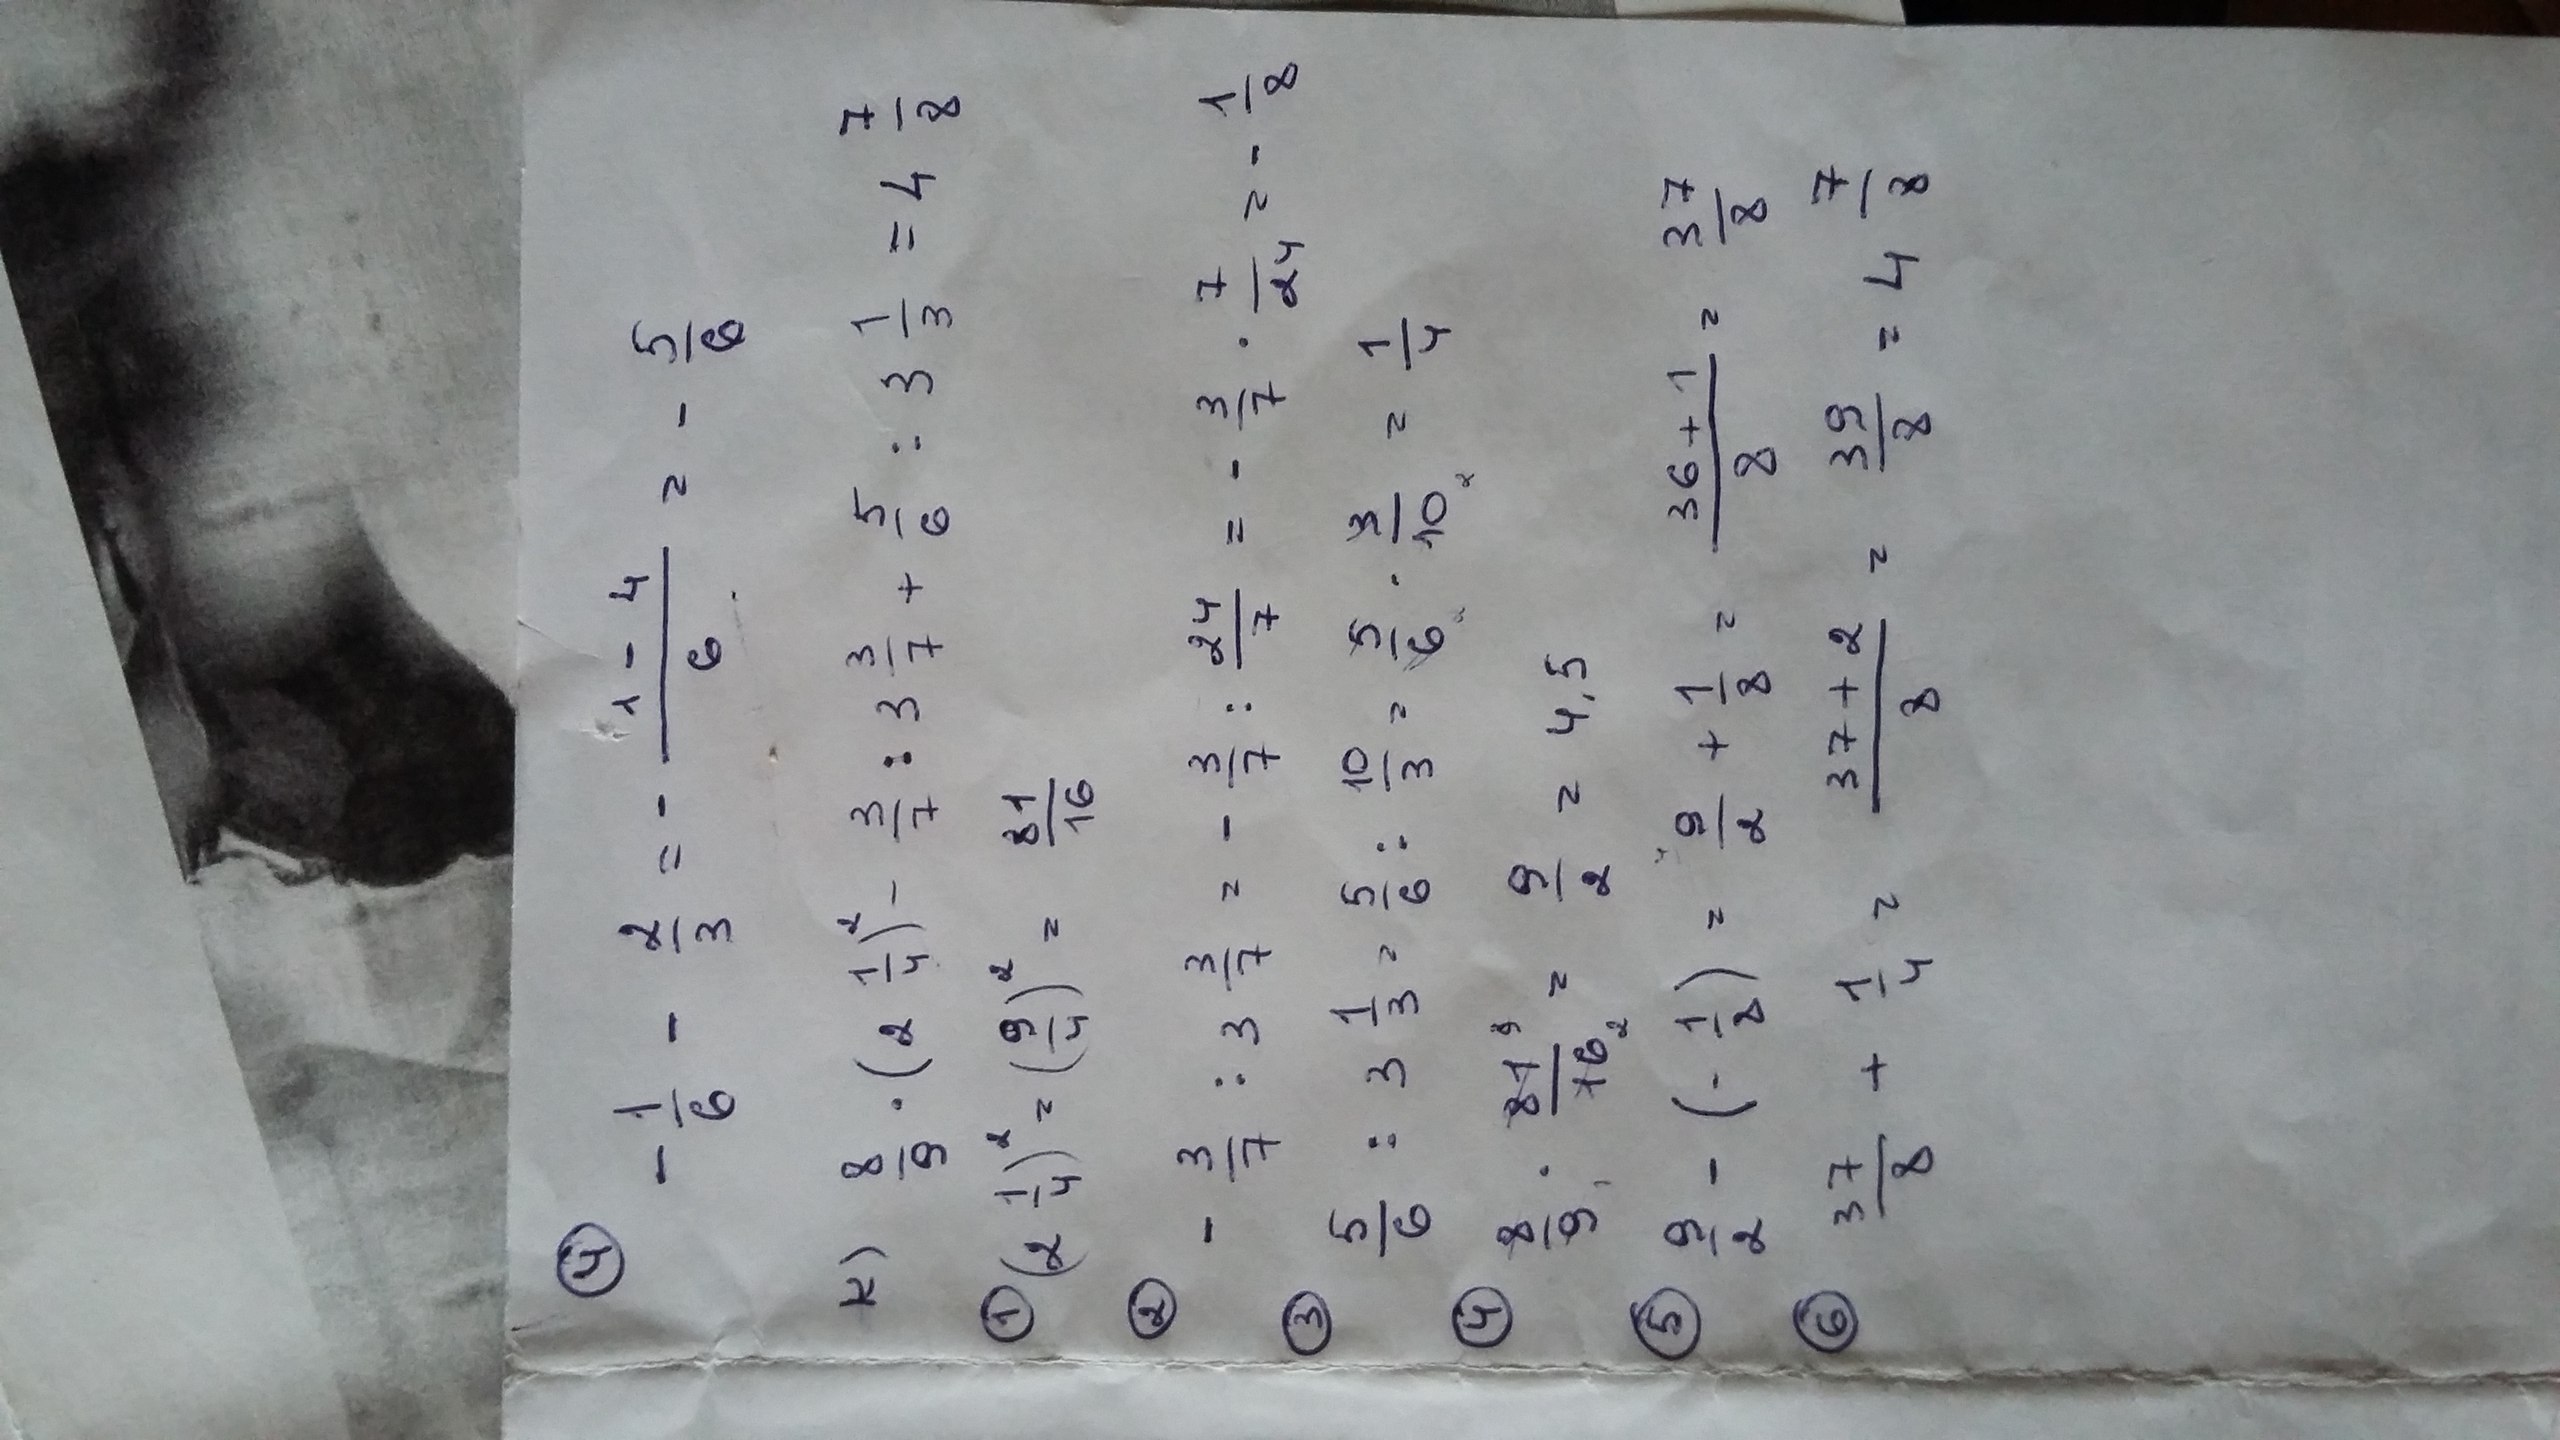 ④ - 1/6 - 2/3 = - (1-4)/6 = - 5/6
к) 8/9 · (2 1/4)² - 3/7 : 3 3/7 + 5/6 : 3 1/3 = 4 7/8
① (2 1/4)² = (9/4)² = 81/16
② - 3/7 : 3 3/7 = - 3/7 : 24/7 = - 3/7 · 7/24 = - 1/8
③ 5/6 : 3 1/3 = 5/6 : 10/3 = 5/6 · 3/10 = 1/4
④ 8/9 · 81/16 = 9/2 = 4,5
⑤ 9/2 - (- 1/8) = 9/2 + 1/8 = (36+1)/8 = 37/8
⑥ 37/8 + 1/4 = (37+2)/8 = 39/8 = 4 7/8